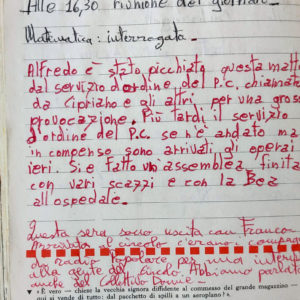 Alle 16,30 riunione del giornale.
Matematica: interrogata.
Alfredo è stato picchiato questa matt
dal servizio d'ordine del P.C. chiamat
da Cipriano e gli altri per una gross
provocazione. Più tardi il servizio
d'ordine del P.C. se n'è andato ma
in compenso sono arrivati gli operai
ieri. Si è fatto un'assemblea finita
con vari scazzi e con la Bea
all'ospedale.
Questa sera sono uscita con Franco
al circolo c'erano i compagn
da radio popolare per una interv
alla gente del circolo. Abbiamo parlat
anche del Collettivo Donne -
▼ «È vero — chiese la vecchia signora diffidente al commesso del grande magazzino —
qui si vende di tutto: dal pacchetto di spilli a un aeroplano?».